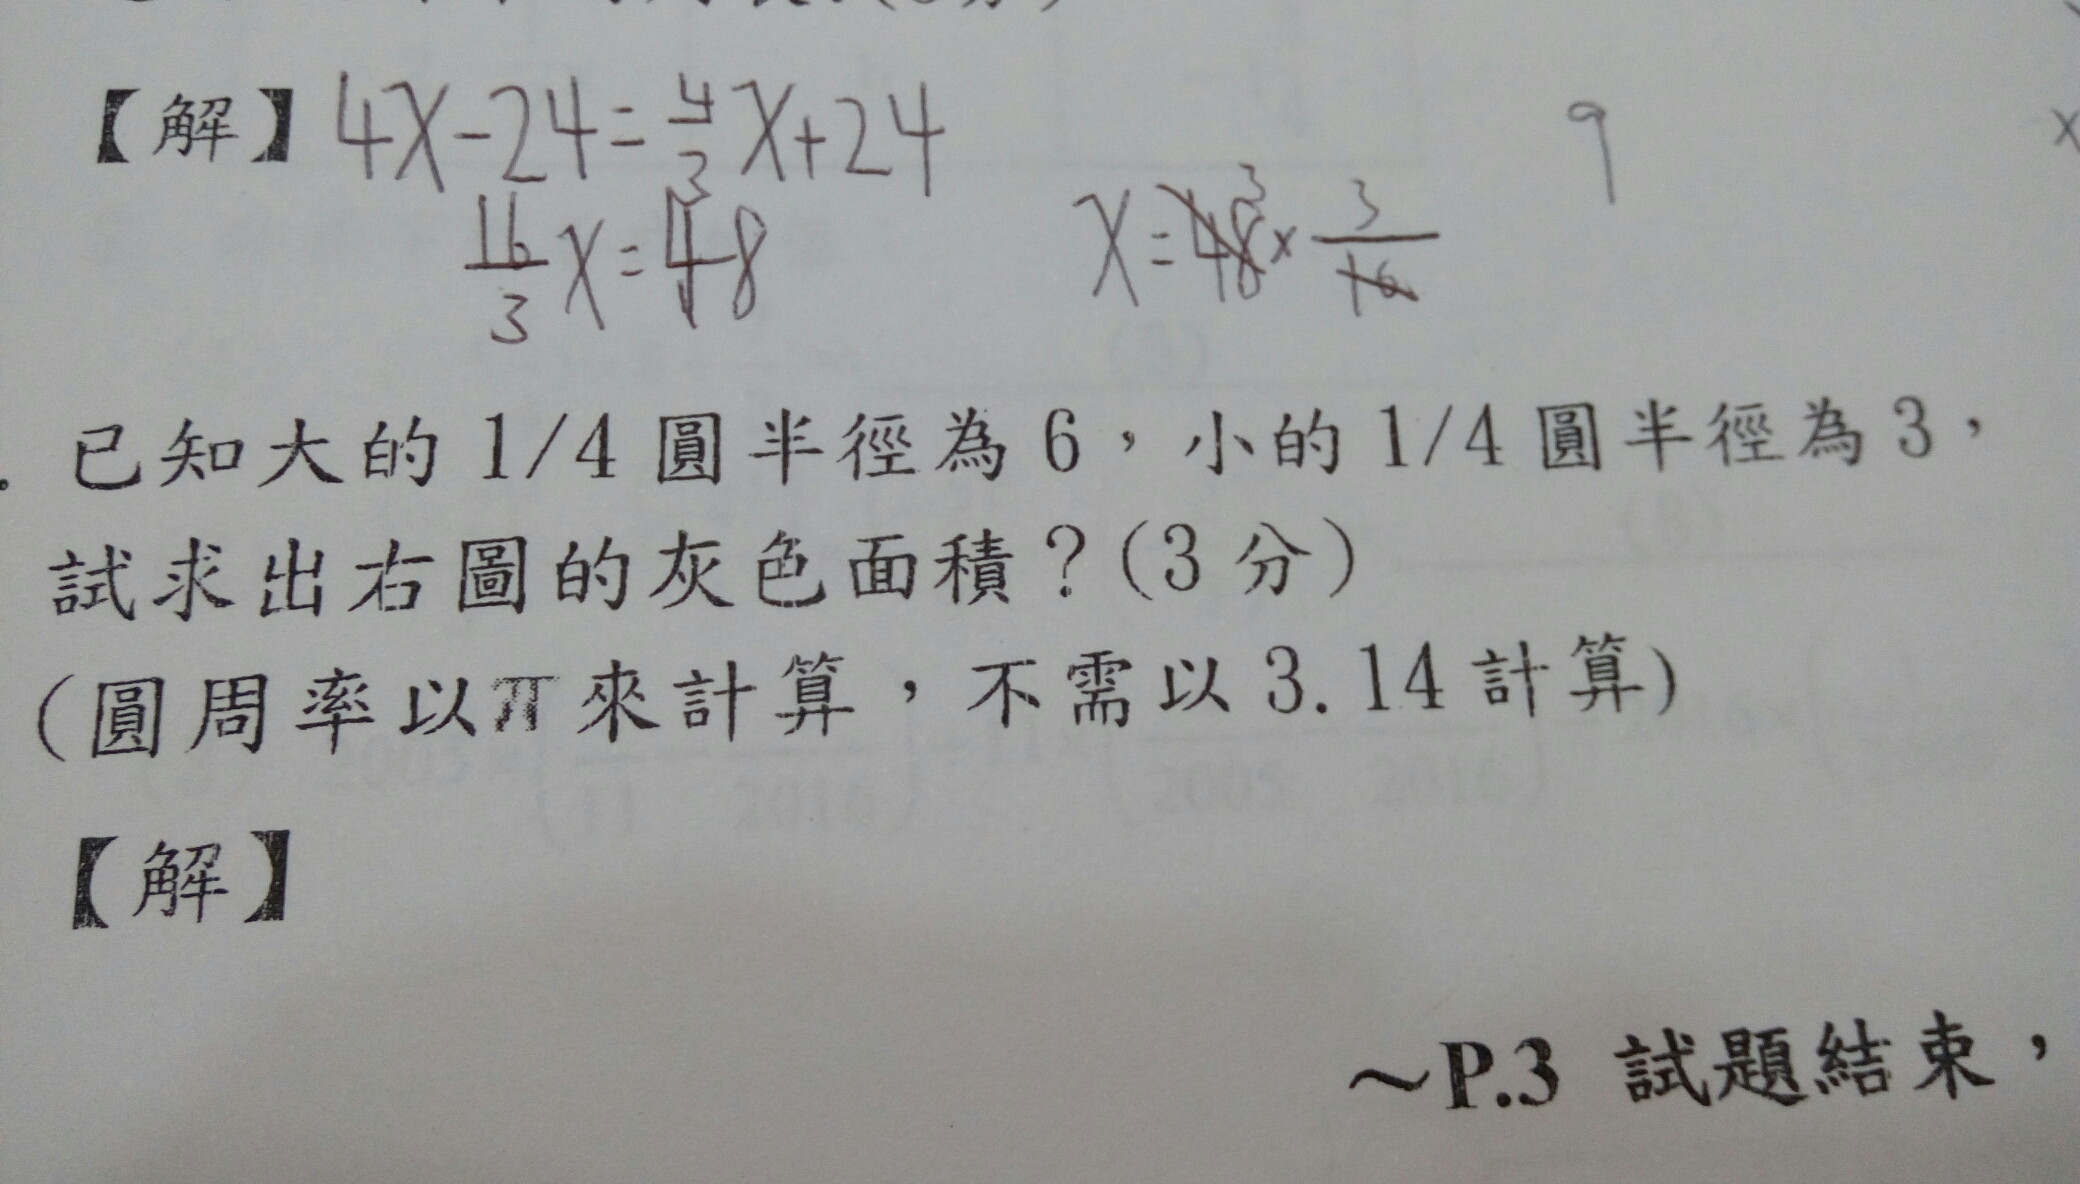 【解】4X-24=4/3X+24
16/3X=48 X=48³×3/16
9
已知大的1/4圓半徑為6，小的1/4圓半徑為3，
試求出右圖的灰色面積？(3分)
(圓周率以π來計算，不需以3.14計算)
【解】
～P.3 試題結束，